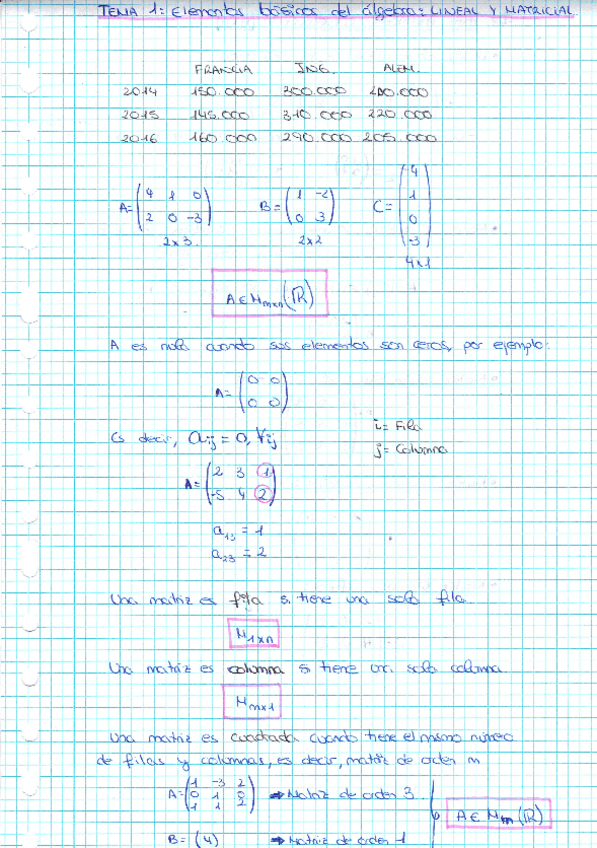 TEMA 1: Elementos básicos del álgebra: LINEAL Y MATRICIAL
FRANCIA ING. ALEM.
2014 150.000 300.000 200.000
2015 145.000 310.000 220.000
2016 160.000 290.000 205.000
A= (4 1 0
2 0 -3)
2x3
B= (1 -2
0 3)
2x2
C= (-4
1
0
-3)
4x1
A ∈ Mmxn (R)
A es nula cuando sus elementos son ceros, por ejemplo:
A= (0 0
0 0)
Es decir, aij = 0, ∀ij
i= Fila
j= Columna
A= (2 3 1
-5 4 2)
a13 = 1
a23 = 2
Una matriz es fila si tiene una sola fila.
M1xn
Una matriz es columna si tiene una sola columna
Mmx1
Una matriz es cuadrada cuando tiene el mismo número
de filas y columnas, es decir, matriz de orden m
A= (1 -3 2
0 1
1 1) ⇒ Matriz de orden 3
A ∈ Mm (R)
B= (4) ⇒ Matriz de orden 1